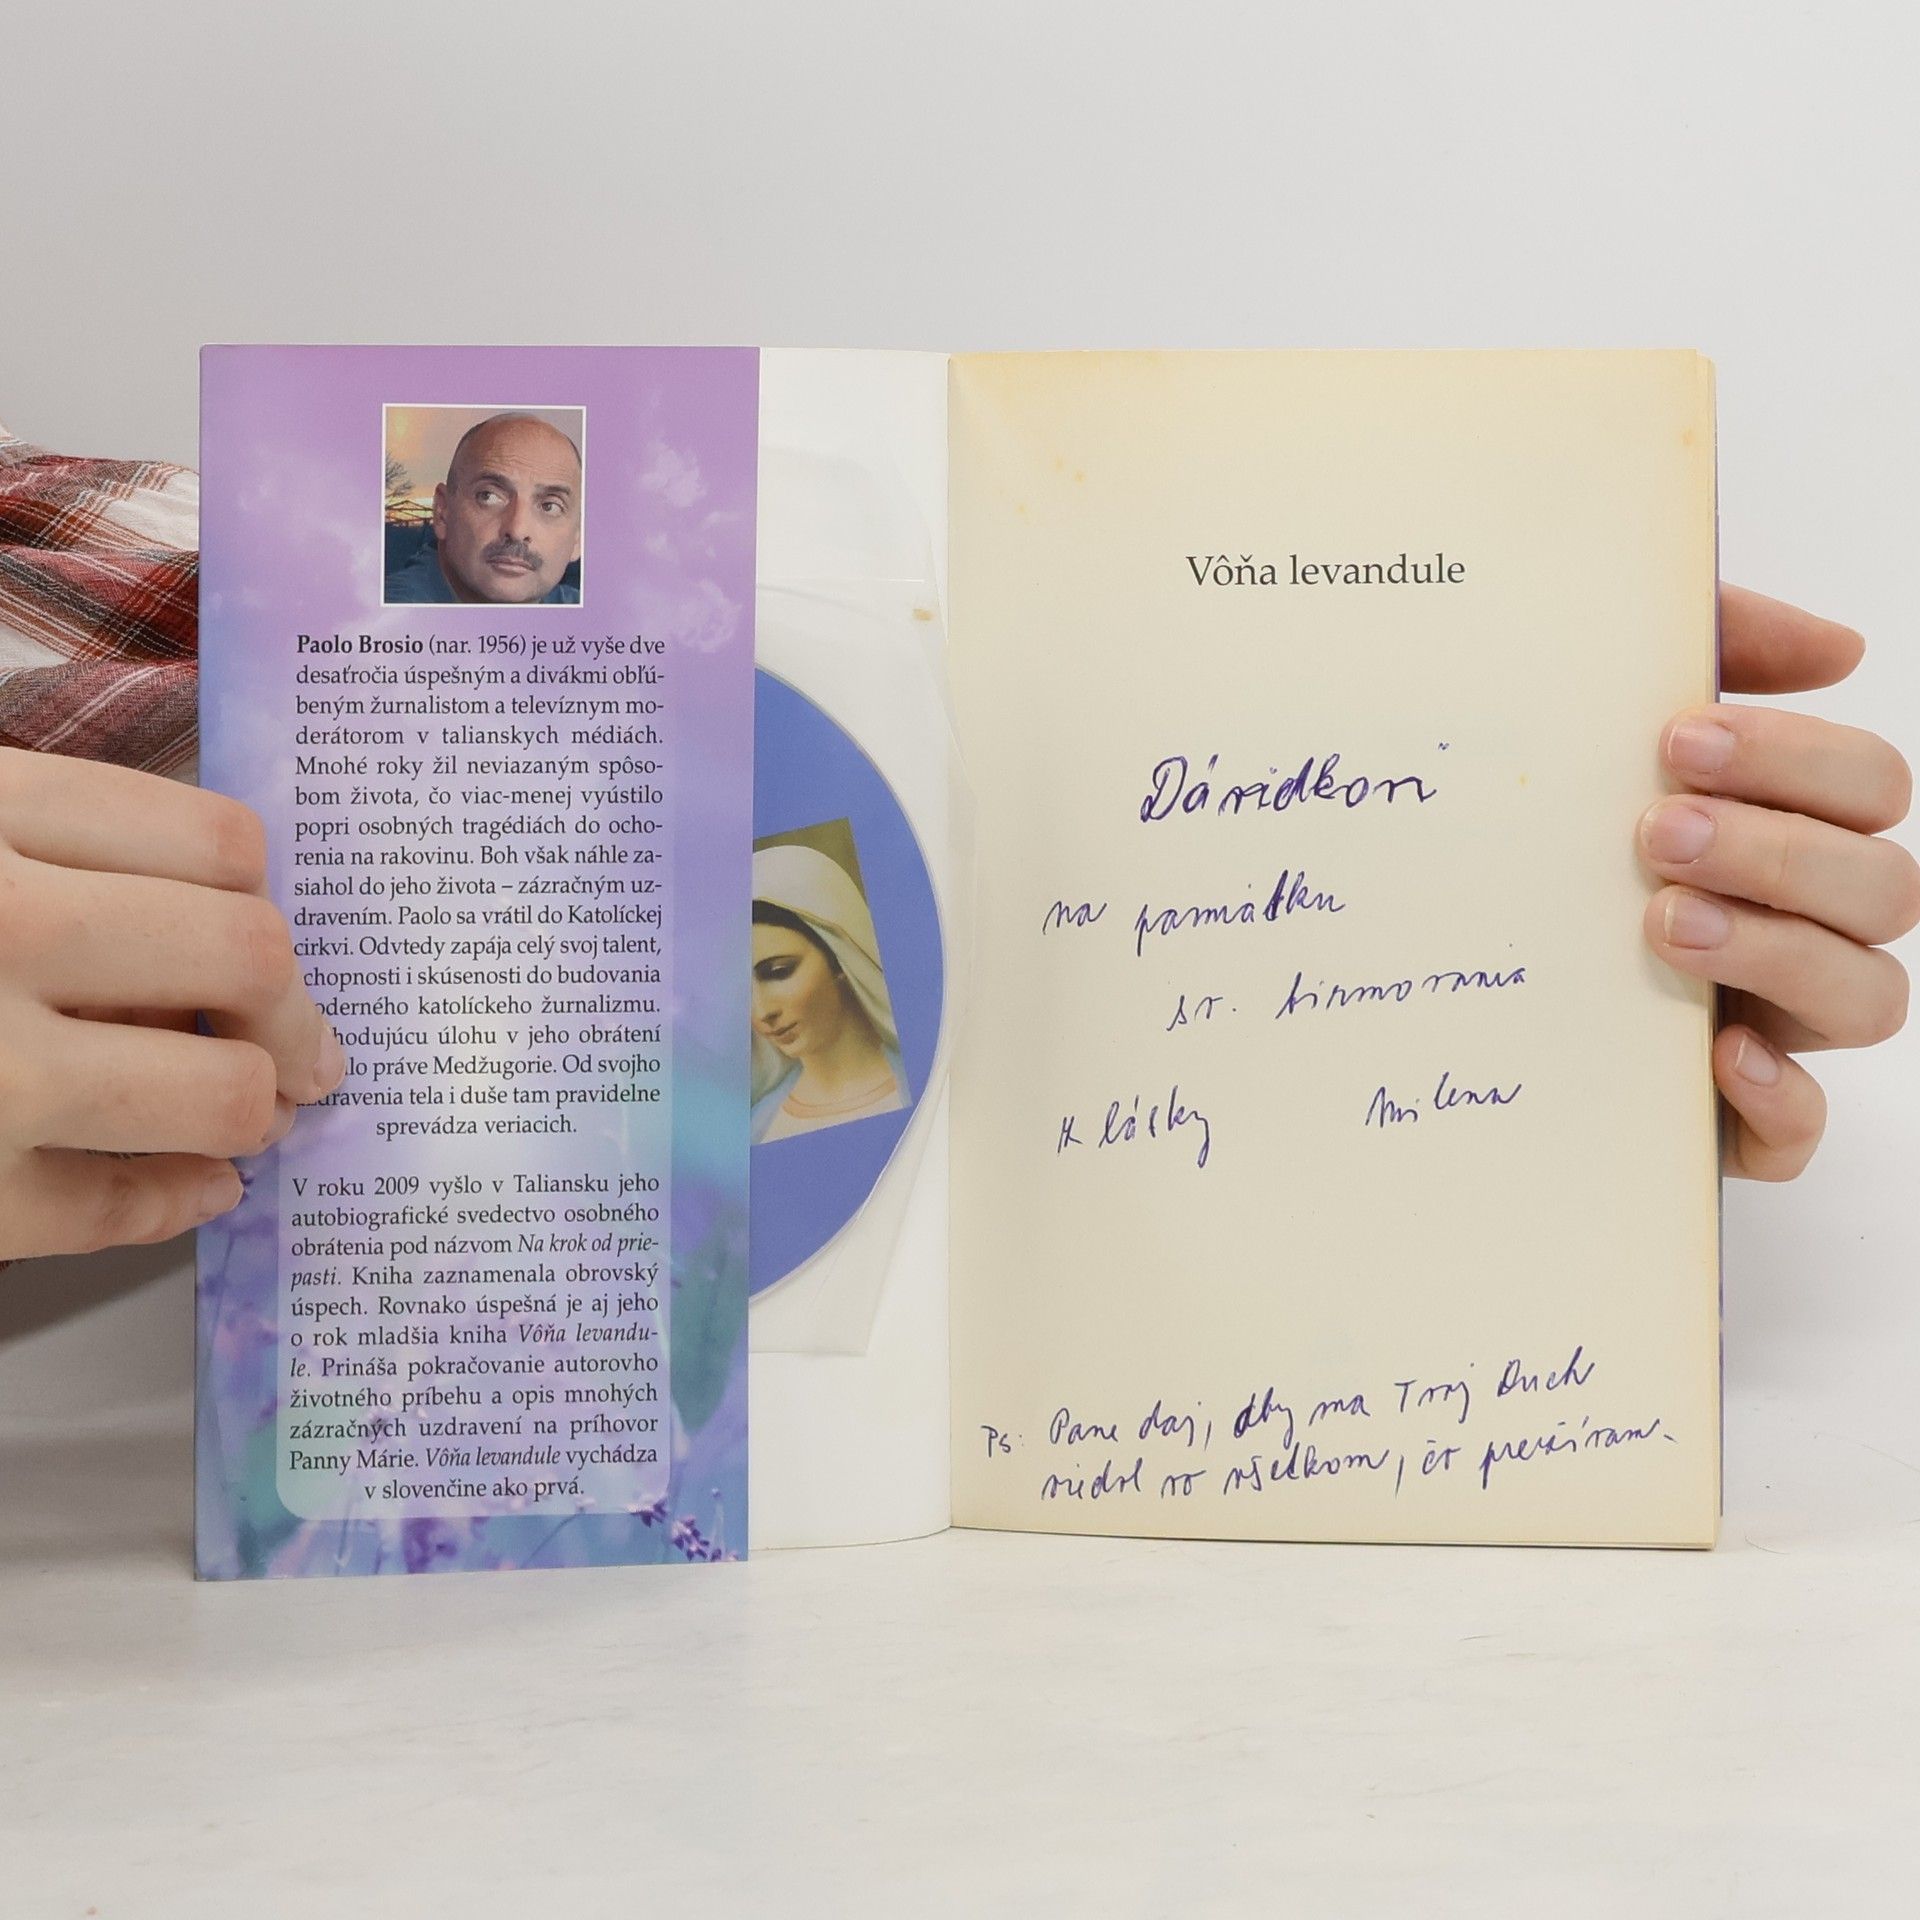 Paolo Brosio (nar. 1956) je už vyše dve
desaťročia úspešným a divákmi obľú-
beným žurnalistom a televíznym mo-
derátorom v talianskych médiách.
Mnohé roky žil neviazaným spôso-
bom života, čo viac-menej vyústilo
popri osobných tragédiách do ocho-
renia na rakovinu. Boh však náhle za-
siahol do jeho života – zázračným uz-
dravením. Paolo sa vrátil do Katolíckej
cirkvi. Odvtedy zapája celý svoj talent,
chopnosti i skúsenosti do budovania
oderného katolíckeho žurnalizmu.
hodujúcu úlohu v jeho obrátení
lo práve Medžugorie. Od svojho
dravenia tela i duše tam pravidelne
sprevádza veriacich.
V roku 2009 vyšlo v Taliansku jeho
autobiografické svedectvo osobného
obrátenia pod názvom Na krok od prie-
pasti. Kniha zaznamenala obrovský
úspech. Rovnako úspešná je aj jeho
o rok mladšia kniha Vôňa levandu-
le. Prináša pokračovanie autorovho
životného príbehu a opis mnohých
zázračných uzdravení na príhovor
Panny Márie. Vôňa levandule vychádza
v slovenčine ako prvá.
Vôňa levandule
Dávidkovi
na pamiatku
sv. birmovania
z lásky Milena
Ps: Pane daj, aby ma Tvoj Duch
viedol vo všetkom, čo prežívam.